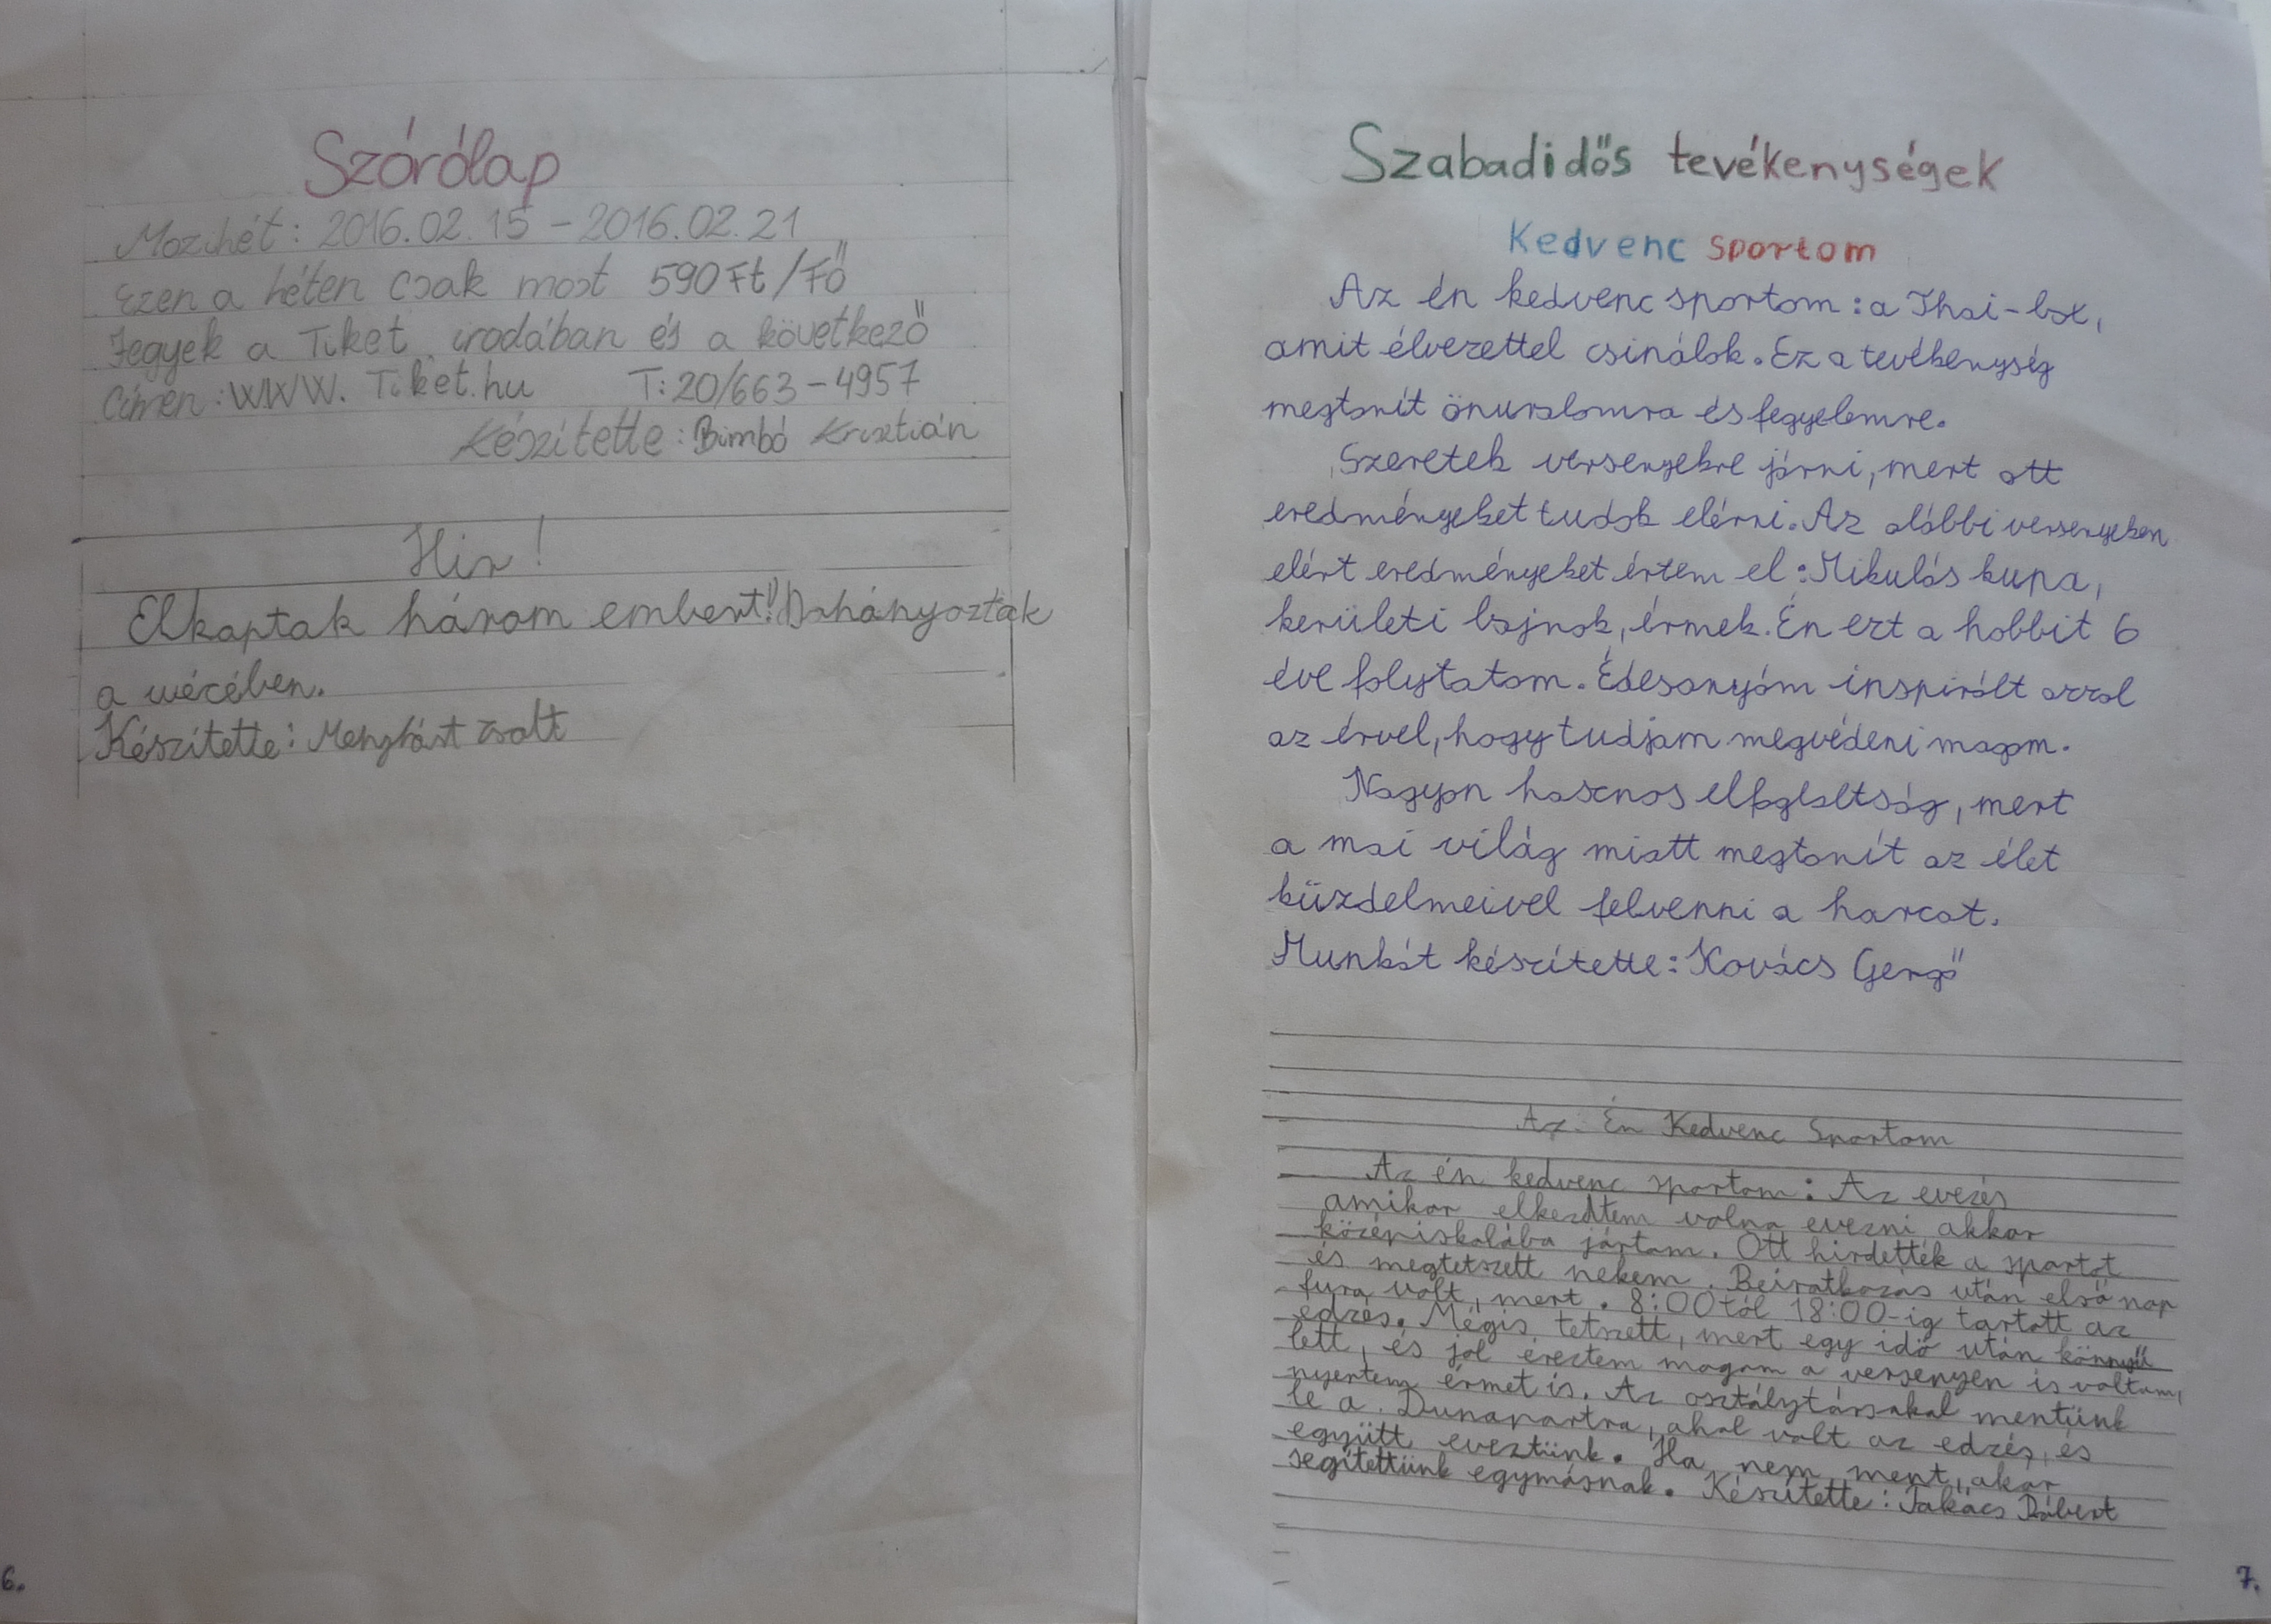 Szórólap
Mozihét: 2016.02.15 - 2016.02.21
Ezen a héten csak most 590 Ft/Fő
Jegyek a Tiket irodában és a következő
Címen: WWW. Tiket.hu T: 20/663-4957
Készítette: Bimbó Krisztián
Hir!
Elkaptak három embert! Dohányoztak
a wécében.
Készítette: Menyhárt Zsolt
6.
Szabadidős tevékenységek
Kedvenc sportom
Az én kedvenc sportom: a Thai-box,
amit élvezettel csinálok. Ez a tevékenység
megtanít önuralomra és fegyelemre.
Szeretek versenyekre járni, mert ott
eredményeket tudok elérni. Az alábbi versenyeken
elért eredményeket értem el: Mikulás kupa,
kerületi bajnok, érmek. Én ezt a hobbit 6
éve folytatom. Édesanyám inspirált azzal
az érvel, hogy tudjam megvédeni magam.
Nagyon hasznos elfoglaltság, mert
a mai világ miatt megtanít az élet
küzdelmeivel felvenni a harcot.
Munkát készítette: Kovács Gergő
Az Én Kedvenc Sportom
Az én kedvenc sportom: Az evezés
amikor elkezdtem volna evezni akkor
középiskolába jártam. Ott hirdették a sportot
és megtetszett nekem. Beiratkozás után első nap
fura volt, mert. 8:00tól 18:00-ig tartott az
edzés. Mégis tetszett, mert egy idő után könnyű
lett, és jól éreztem magam a versenyen is voltam,
nyertem érmet is. Az osztálytársakal mentünk
le a Dunapartra, ahol volt az edzés, és
együtt eveztünk. Ha nem ment, akar
segítettünk egymásnak. Készítette: Takács Róbert
7.